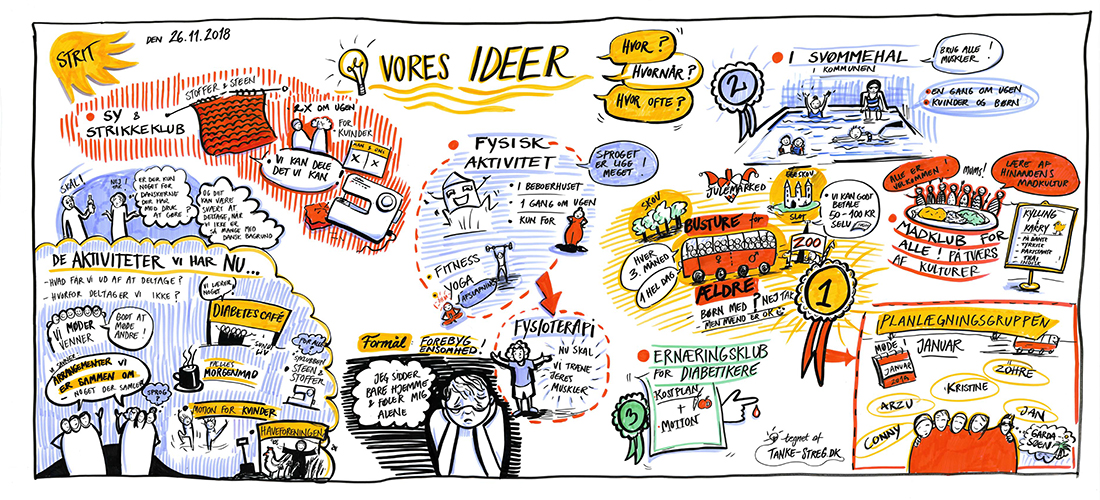 STRIT
DEN 26.11.2018
VORES IDEER
HVOR?
HVORNÅR?
HVOR OFTE?
STOFFER & STEEN
SY &
STRIKKEKLUB
2X OM UGEN
FOR
KVINDER
MAN & ONS
X / X
VI KAN DELE
DET VI KAN!
SKAL!
NEJ
ER DER KUN
NOGET FOR
DANSKERNE
DER HAR
MED DRUK
AT GØRE
OG DET
KAN VÆRE
SVÆRT AT
DELTAGE, NÅR
VI IKKE ER
SÅ MANGE MED
DANSK BAGRUND
DE AKTIVITETER VI HAR NU...
- HVAD FÅR VI UD AF AT DELTAGE?
- HVORFOR DELTAGER VI IKKE?
VI MØDER
VENNER
GODT AT
MØDE
ANDRE!
VI LÆRER
NOGET
DIABETESCAFÉ
SUNDT
LIV
FÆLLES
MORGENMAD
FOR ALLE
STEEN &
STOFFER
VI MANGLER
ARRANGEMENTER VI
ER SAMMEN OM
NOGET DER SAMLER
SPROG
MOTION FOR KVINDER
HAVEFORENINGEN
FYSISK
AKTIVITET
SPROGET
ER LIGE
MEGET!
I BEBOERHUSET
1 GANG OM UGEN
KUN FOR
FITNESS
YOGA
AFSPÆNDING
FYSIOTERAPI
NU SKAL
VI TRÆNE
JERES
MUSKLER
Formål: FOREBYG
ENSOMHED!
JEG SIDDER
BARE HJEMME
& FØLER MIG
ALENE
2
I SVØMMEHAL
I KOMMUNEN
BRUG ALLE
MUSKLER!
EN GANG OM UGEN
KVINDER OG BØRN
SKOV
JULEMARKED
EGESKOV
SLOT
BUSTURE for
ÆLDRE
HVER
3. MÅNED
1 HEL DAG
ZOO
VI KAN GODT
BETALE
50-100 KR
SELV
BØRN MED? NEJ TAK
MEN MÆND ER OK
1
ALLE ER
VELKOMMEN
MUMS!
LÆRE AF
HINANDENS
MADKULTUR
MADKLUB FOR
ALLE! PÅ TVÆRS
AF KULTURER
KYLLING
I
KARRY
PÅ DANSK
TYRKISK
PAKISTANSK
THAI
INDISK
3
ERNÆRINGSKLUB
FOR DIABETIKERE
KOSTPLAN
+
MOTION
tegnet af
TANKE-STREG.DK
PLANLÆGNINGSGRUPPEN
MØDE I JANUAR
JANUAR
2019
ZÖHRE
KRISTINE
ARZU
JAN
CONNY
GARDA
SØEN